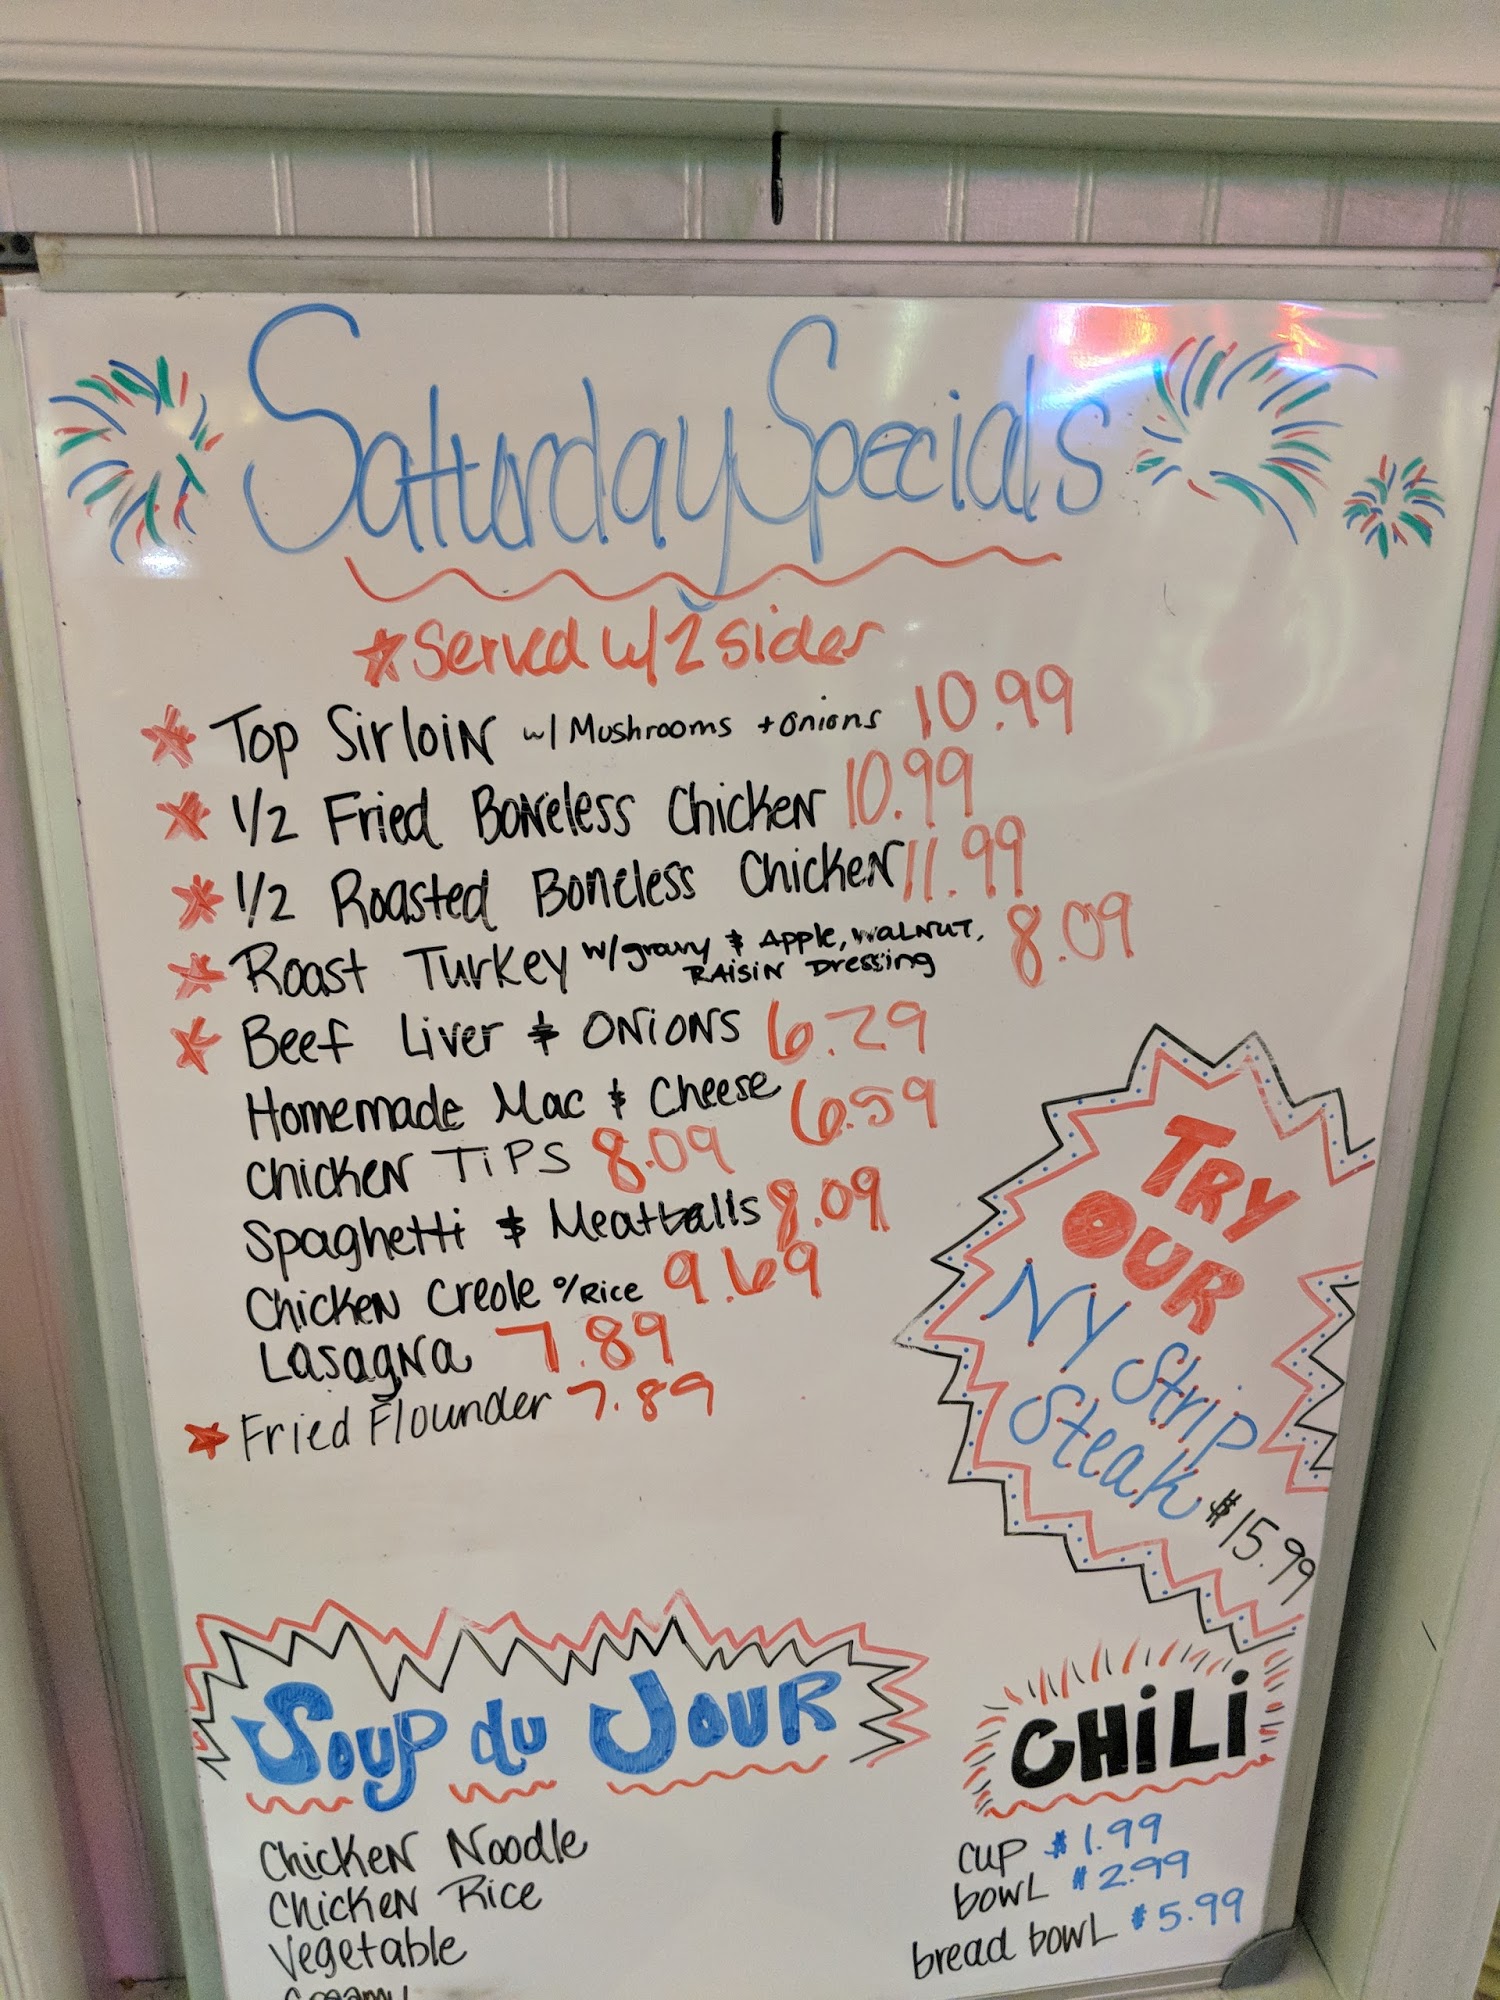 Saturday Specials
*Served w/2 sides
* Top Sirloin w/ Mushrooms + Onions 10.99
* 1/2 Fried Boneless Chicken 10.99
* 1/2 Roasted Boneless Chicken 11.99
* Roast Turkey w/gravy & Apple, Walnut, 8.09
Raisin Dressing
* Beef Liver & Onions 6.29
Homemade Mac & Cheese 6.59
Chicken Tips 8.09
Spaghetti & Meatballs 8.09
Chicken Creole o/Rice 9.69
Lasagna 7.89
* Fried Flounder 7.89
TRY
OUR
NY Strip
Steak $15.99
Soup du Jour
Chicken Noodle
Chicken Rice
Vegetable
Creamy
CHiLi
cup $1.99
bowl $2.99
bread bowl $5.99